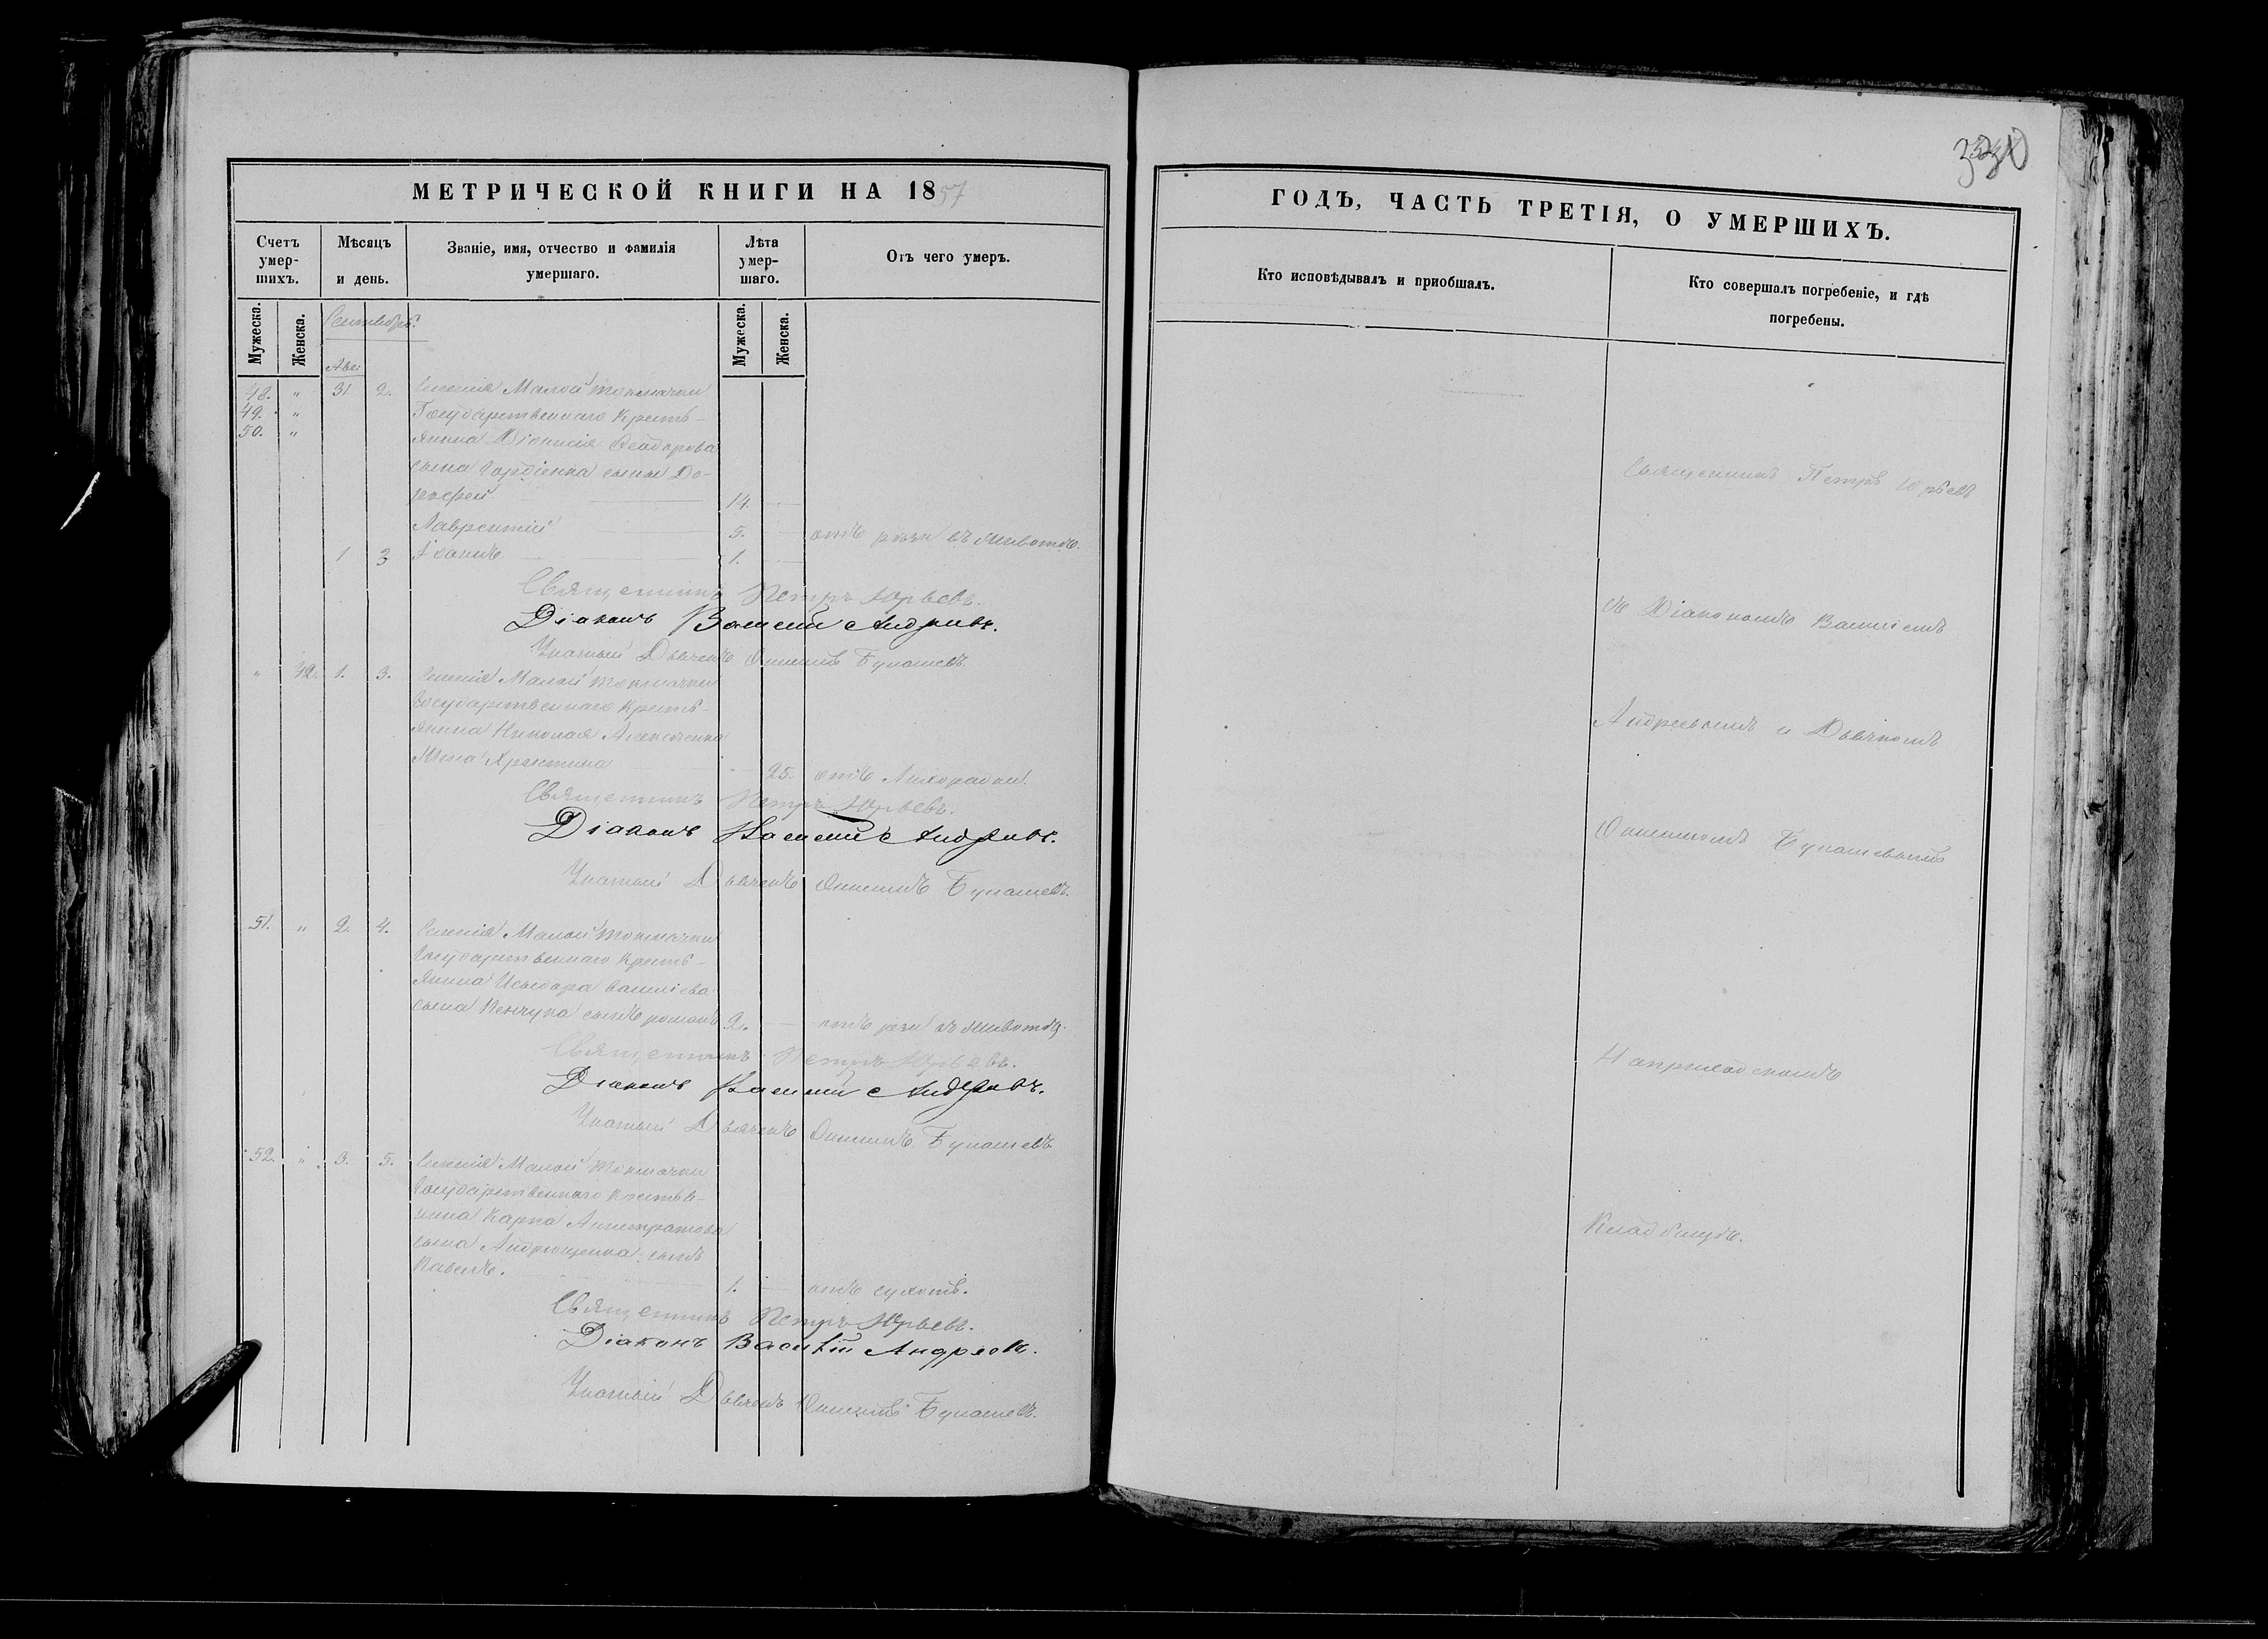 МЕТРИЧЕСКОЙ КНИГИ НА 1857
Счетъ умер- шихъ.
Мѣсяцъ и день.
Званіе, имя, отчество и фамилія умершаго.
Лѣта умер- шаго.
Отъ чего умеръ.
Мужеска.
Женска.
Сентябрь.
Мужеска.
Женска.
Авг:
48. " 31 2. Селенія Малой Токмачки
49. " Государственнаго Кресть-
50. " янина Діонисія
сына Гордіенка сыны До-
рофей 14.
Лаврентій 5. отъ рези въ животѣ.
1 3 Іоаннъ 1.
Священникъ Петръ Юрьевъ.
Діаконъ Василій Андреевъ.
Указный Дьячекъ Онисимъ Букашевъ.
" 42. 1. 3. Селенія Малой Токмачки
Государственнаго Кресть-
янина Николая Алексеенка
Жена Христина 25. отъ Лихорадки.
Священникъ Петръ Юрьевъ.
Діаконъ Василій Андреевъ.
Указный Дьячекъ Онисимъ Букашевъ.
51. " 2. 4. Селенія Малой Токмачки
Государственнаго Кресть-
янина Исидора Василіева
сына сынъ Романъ 2. отъ рези въ животѣ.
Священникъ Петръ Юрьевъ.
Діаконъ Василій Андреевъ.
Указный Дьячекъ Онисимъ Букашевъ.
52. " 3. 5. Селенія Малой Токмачки
Государственнаго Крестья-
нина Карпа
сына Андрющенка сынъ
Павелъ. 1. отъ сухотъ.
Священникъ Петръ Юрьевъ.
Діаконъ Василій Андреевъ.
Указный Дьячекъ Онисимъ Букашевъ.
ГОДЪ, ЧАСТЬ ТРЕТІЯ, О УМЕРШИХЪ.
Кто исповѣдывалъ и приобщалъ.
Кто совершалъ погребеніе, и гдѣ
погребены.
Священникъ Петръ Юрьевъ
съ Діакономъ Василіемъ
Андреевымъ и Дьячкомъ
Онисимомъ Букашевымъ
На приходскомъ
Кладбищѣ.